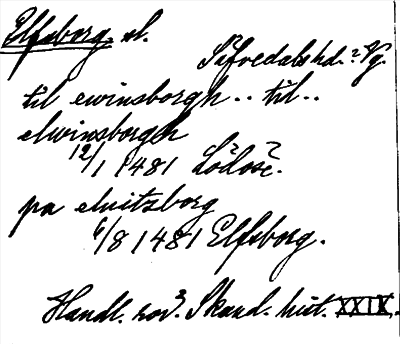 Elfsborg sl.
Säfvedals hd. Vg.
til ewinsborgh .. til ..
elwinsborgh
12/1 1481 Lödöse.
pa eluitzborg
6/8 1481 Elfsborg.
Handl. rör. Skand. hist. XXIX,